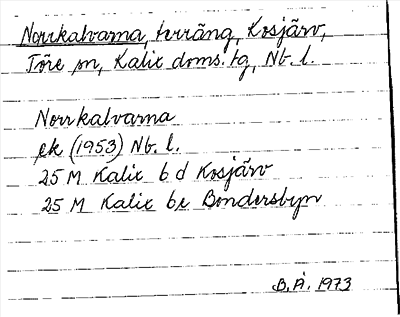 Norrkalvarna, terräng, Kosjärv,
Töre sn, Kalix doms. tg, Nb. l.
Norrkalvarna
ek (1953) Nb. l.
25 M Kalix 6 d Kosjärv
25 M Kalix 6e Bondersbyn
B. Å. 1973